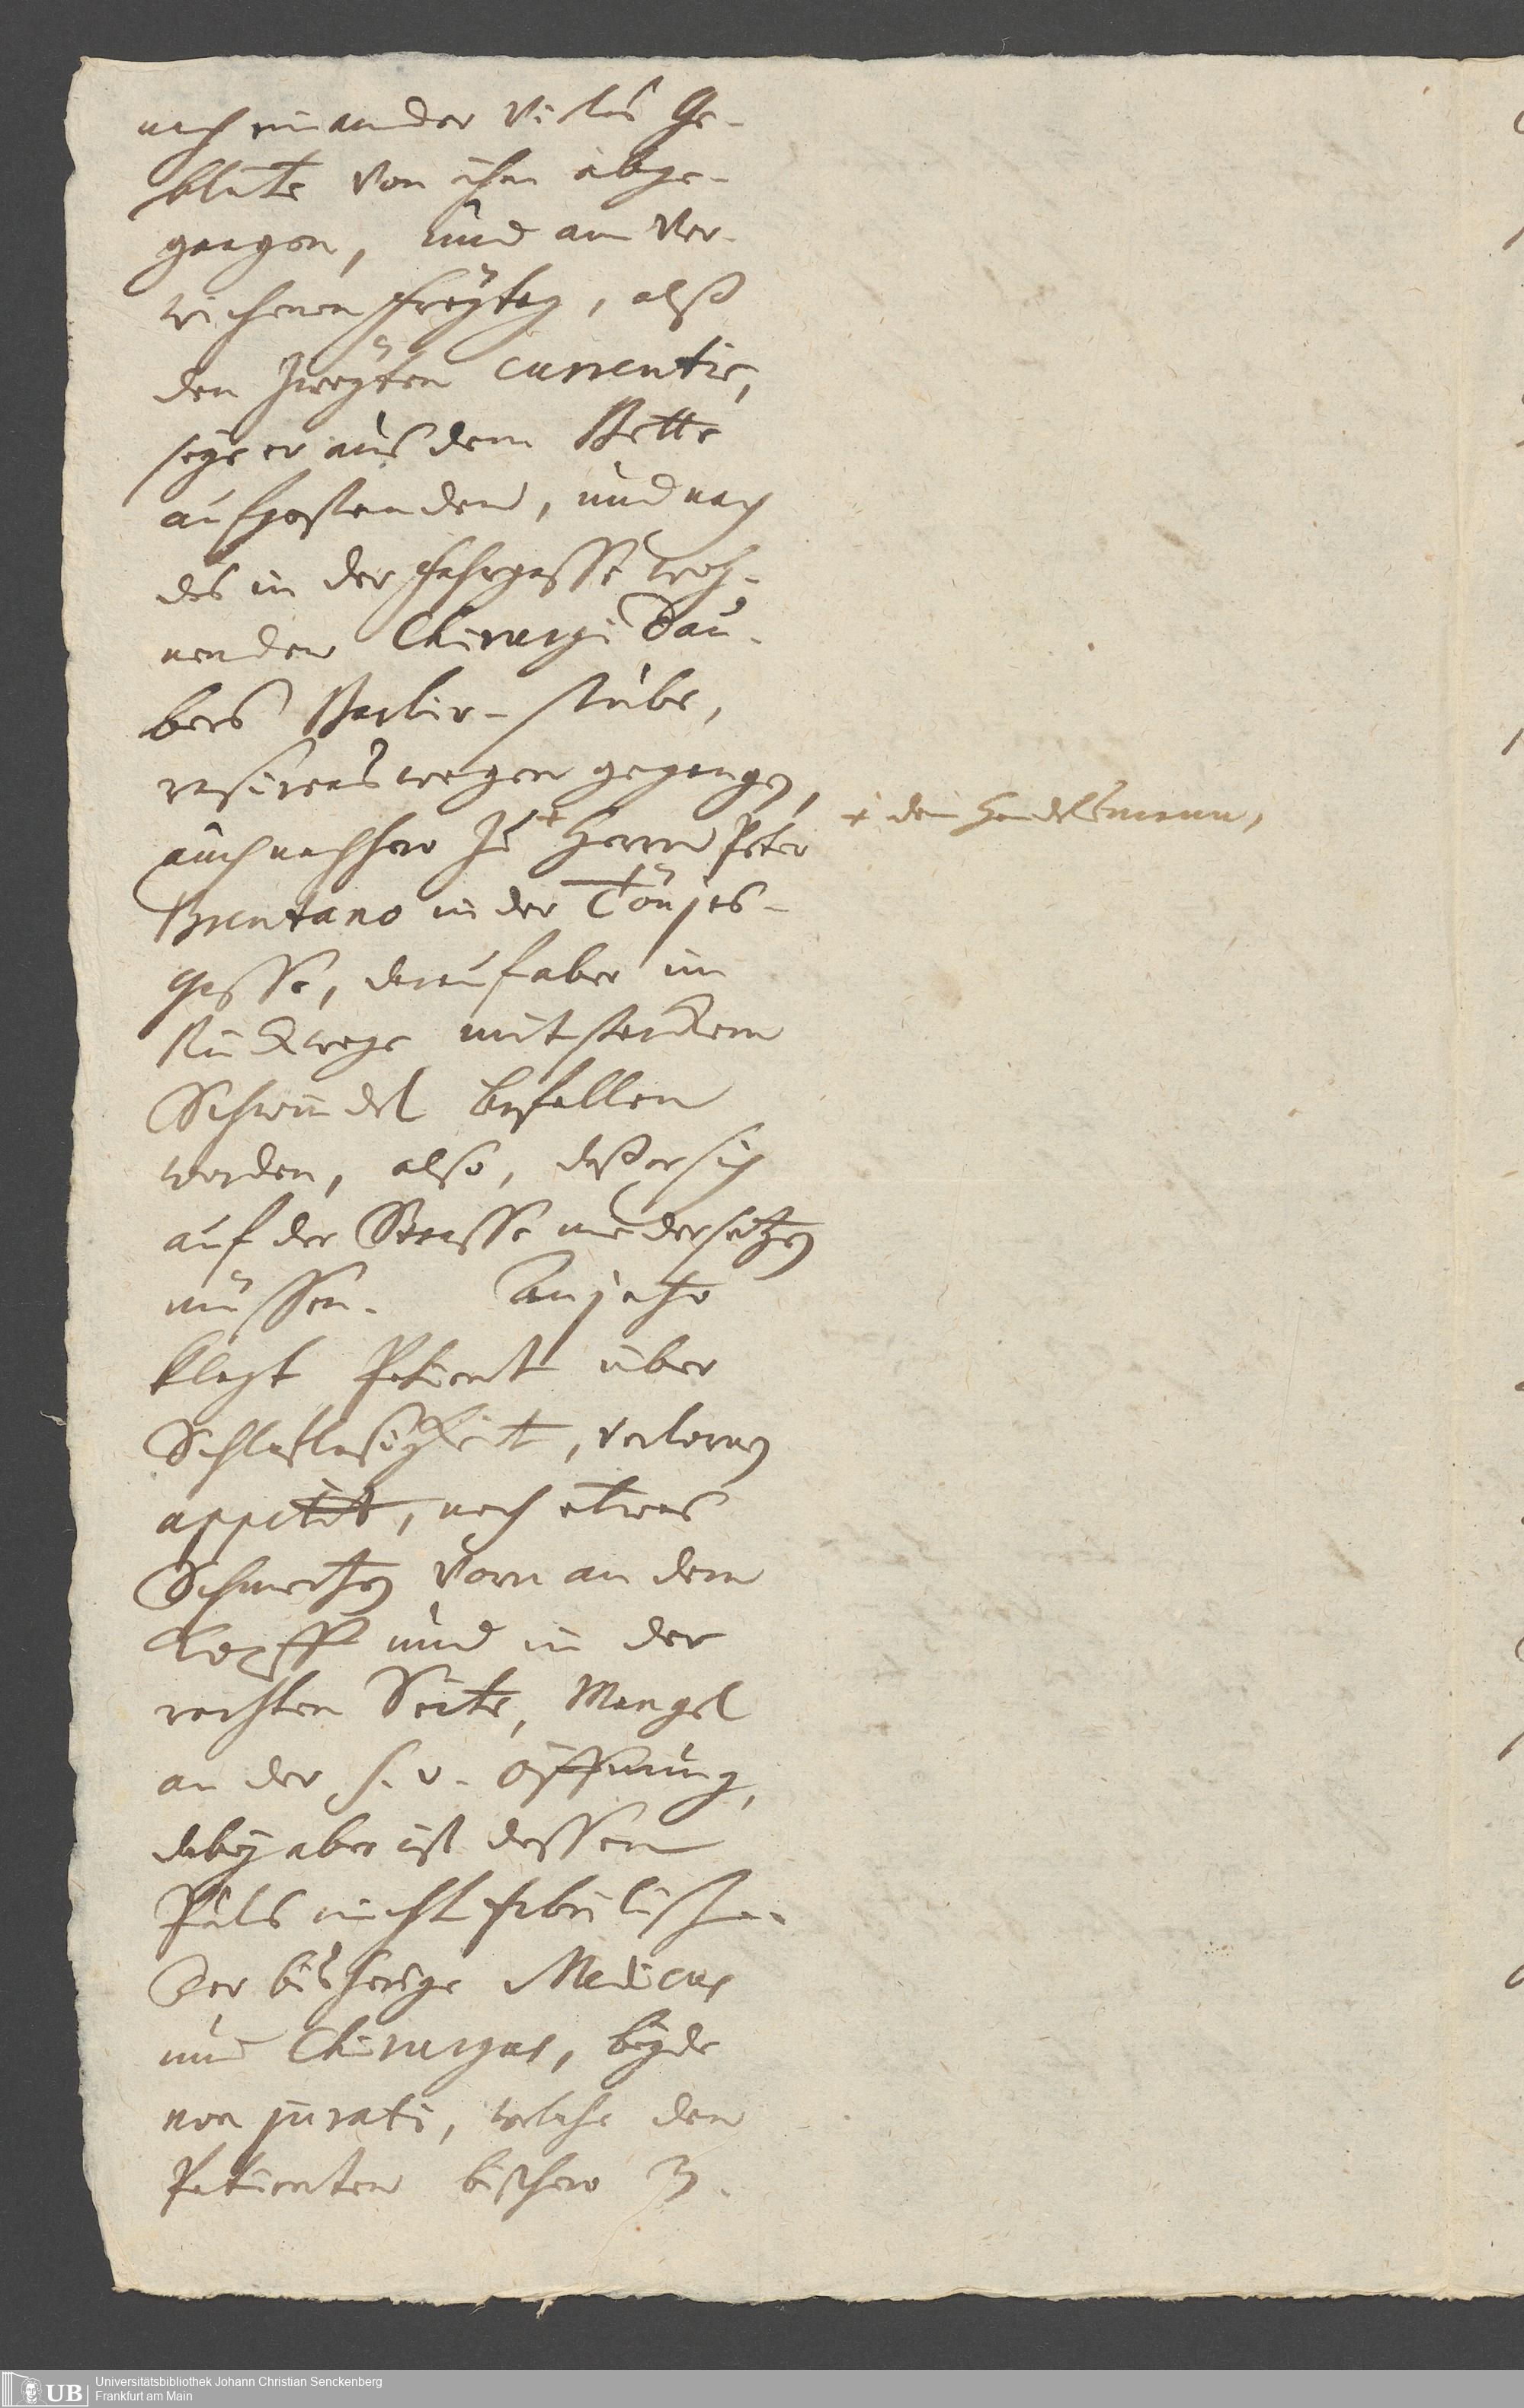 nach einander vieles Ge-
blüte von ihm abge-
gangen, und am ver-
wichenen Freÿtag, alß
den zweÿten currentis,
seÿe er aus dem Bette
aufgestanden, und nach
des in der Fahrgasse woh-
nenden Chirurgi Dau-
bers Barbir-stube,
rasirens wegen gegangen,
auch nachher zu + Herrn Peter
+ dem Handelsmann,
Brentano in der Tönjes-
gasse, darauf aber im
Rückwege mit starckem
Schwindel befallen
worden, also, daß er sich
auf der Strasse niedersetzen
müssen. Anjetzo
klagt Patient über
Schlaflosigkeit, verlornen
appetit, noch etwas
Schmertzen vorn an dem
Kopff und in der
rechten Seite, Mangel
an der s. v. öffnung,
dabeÿ aber ist dessen
Puls nicht febrilisch.
Der bisherige Medicus
und Chirurgus, beÿde
non jurati, welche den
Patienten bisher